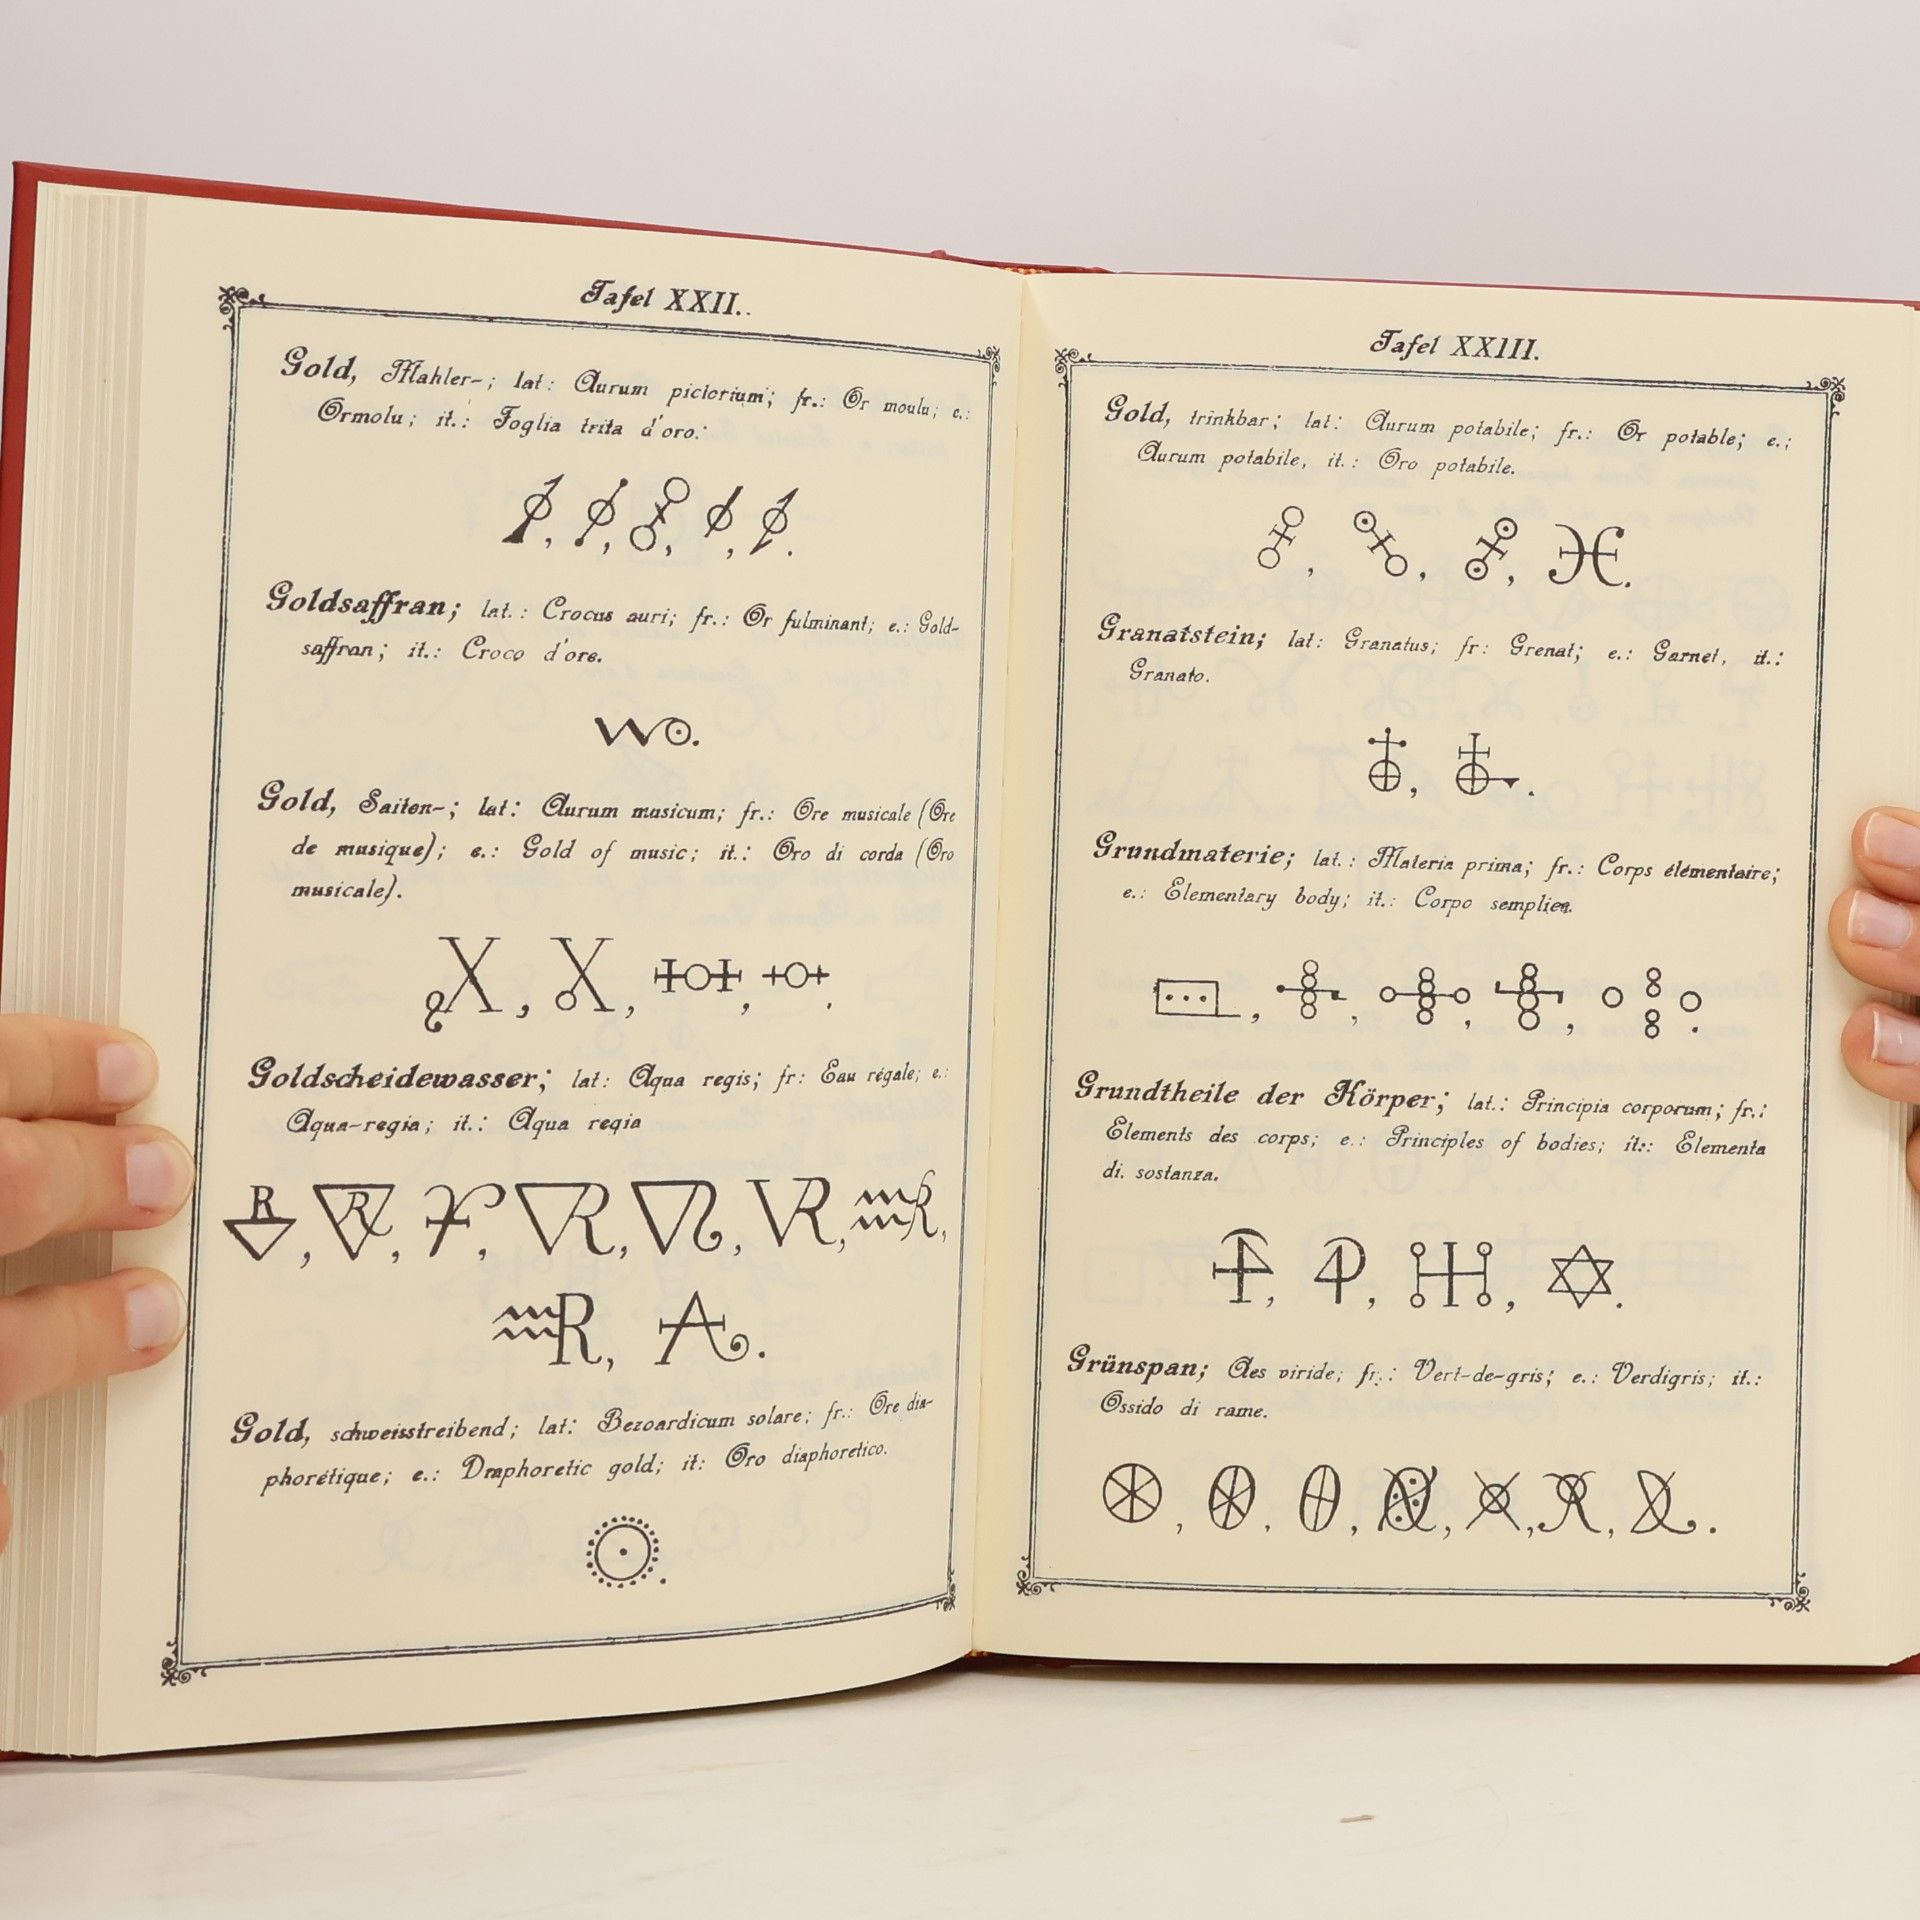 Tafel XXII.
Gold, Mahler-; lat: Aurum pictorium; fr.: Or moulu; e.:
Ormolu; it.: Foglia trita d'oro.
Goldsaffran; lat.: Crocus auri; fr.: Or fulminant; e.: Gold-
saffran; it.: Croco d'oro.
Gold, Saiten-; lat: Aurum musicum; fr.: Ore musicale (Ore
de musique); e.: Gold of music; it.: Oro di corda (Oro
musicale).
Goldscheidewasser; lat: Aqua regis; fr: Eau régale; e.:
Aqua-regia; it.: Aqua regia
Gold, schweisstreibend; lat: Bezoardicum solare; fr.: Ore dia-
phorétique; e.: Draphoretic gold; it: Oro diaphoretico.
Tafel XXIII.
Gold, trinkbar; lat: Aurum potabile; fr.: Or potable; e.:
Aurum potabile, it.: Oro potabile.
Granatstein; lat: Granatus; fr: Grenat; e.: Garnet, it.:
Granato.
Grundmaterie; lat.: Materia prima; fr.: Corps élémentaire;
e.: Elementary body; it.: Corpo semplice.
Grundtheile der Körper; lat.: Principia corporum; fr.:
Elements des corps; e.: Principles of bodies; it.: Elementa
di. sostanza.
Grünspan; Aes viride; fr.: Vert-de-gris; e.: Verdigris; it.:
Ossido di rame.